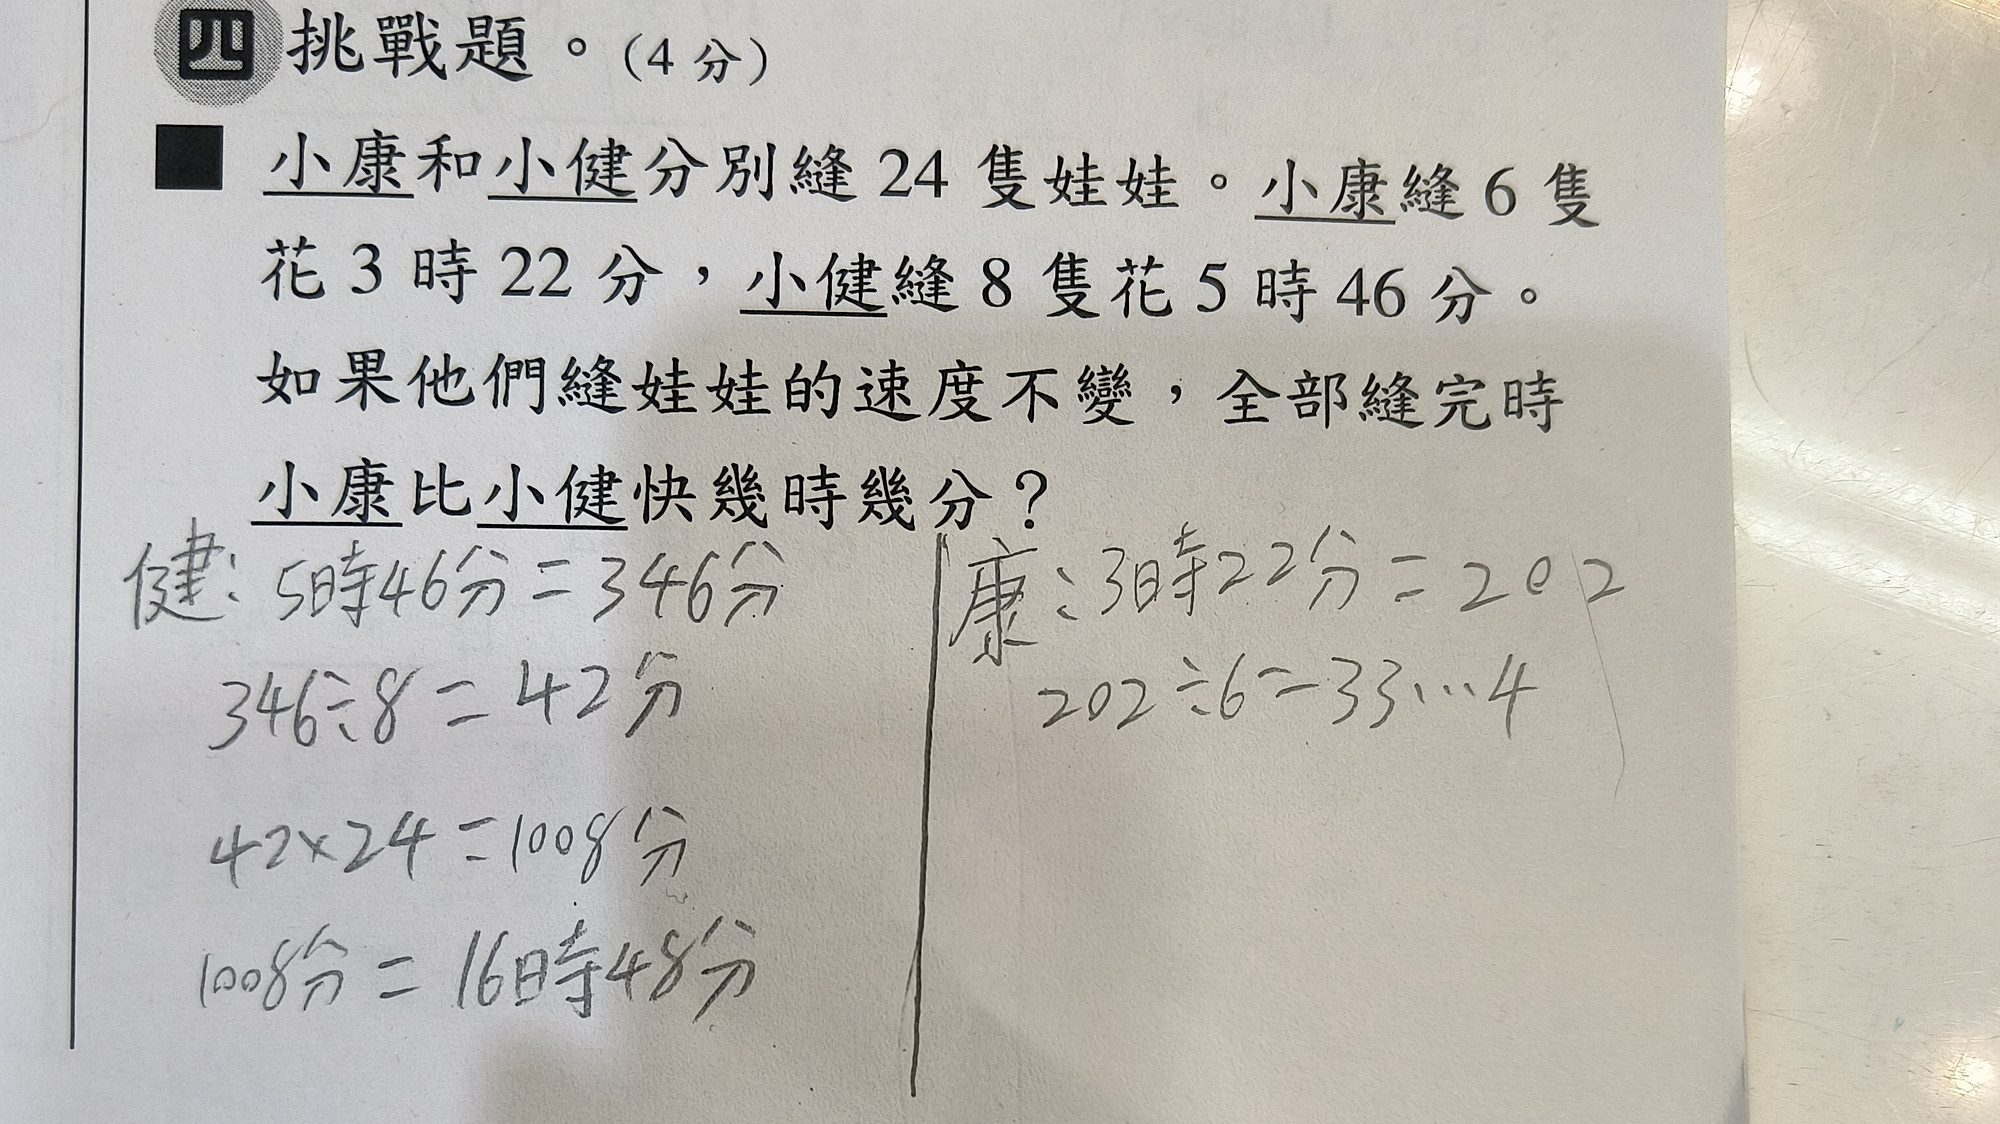 四 挑戰題。(4 分)
■ 小康和小健分別縫 24 隻娃娃。小康縫 6 隻
花 3 時 22 分，小健縫 8 隻花 5 時 46 分。
如果他們縫娃娃的速度不變，全部縫完時
小康比小健快幾時幾分？
健：5時46分=346分
346÷8=42分
42×24=1008分
1008分=16時48分
康：3時22分=202
202÷6=33…4